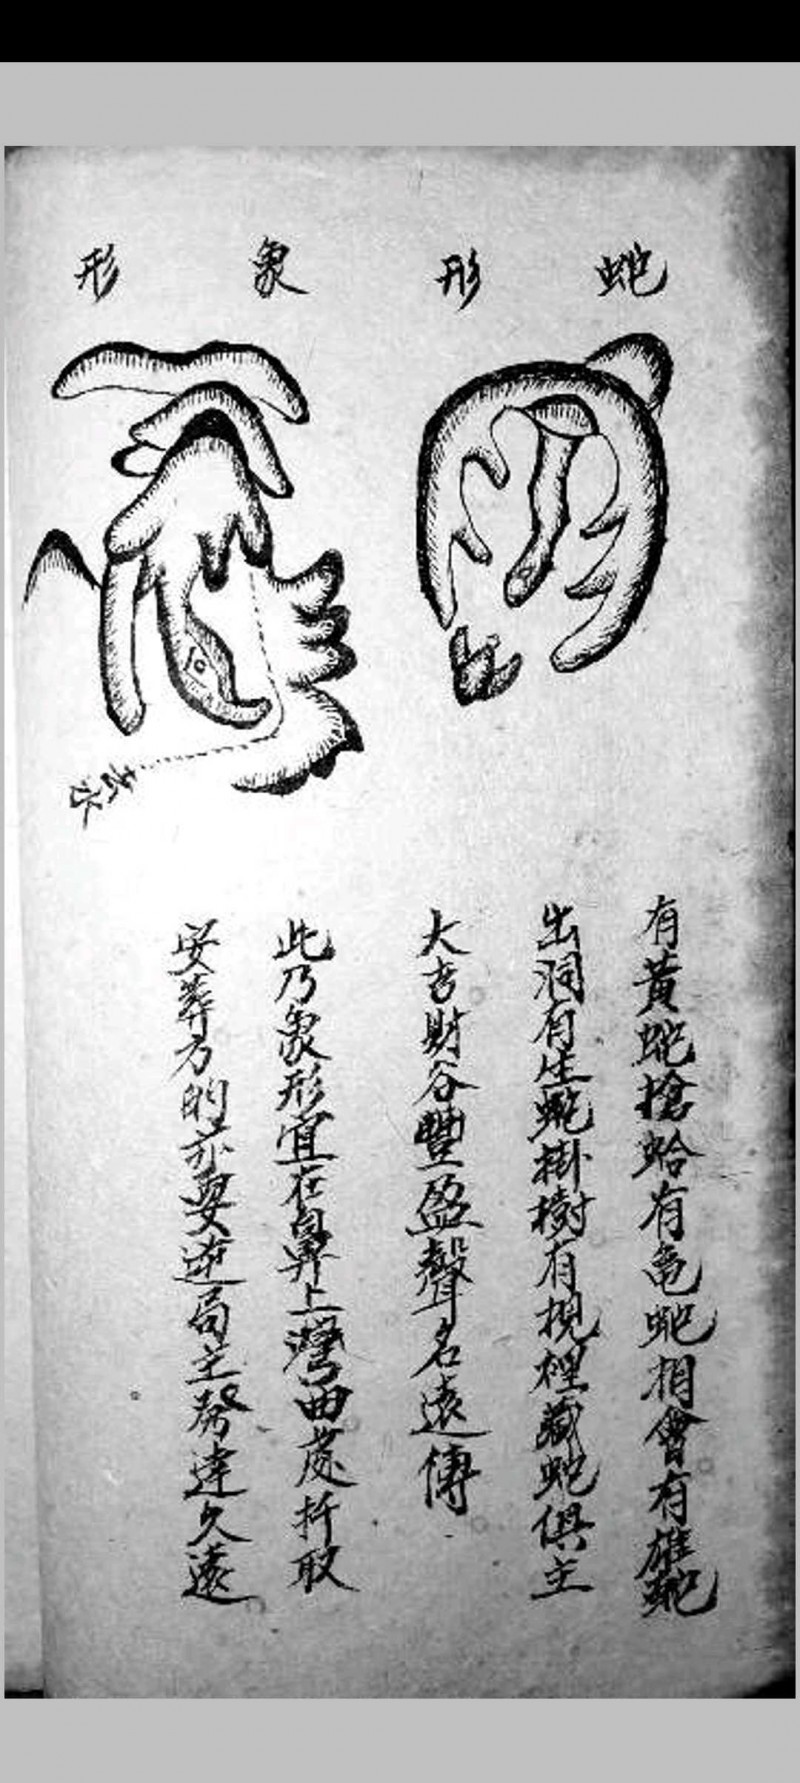 蛇形
象形
去水
有黃蛇搶蛤有龟蛇相會有雄蛇
出洞有生蛇掛樹有梘裡藏蛇俱主
大吉財谷豐盈聲名遠傳
此乃象形宜在鼻上灣曲处扦取
安葬方的亦要逆局主發達久遠